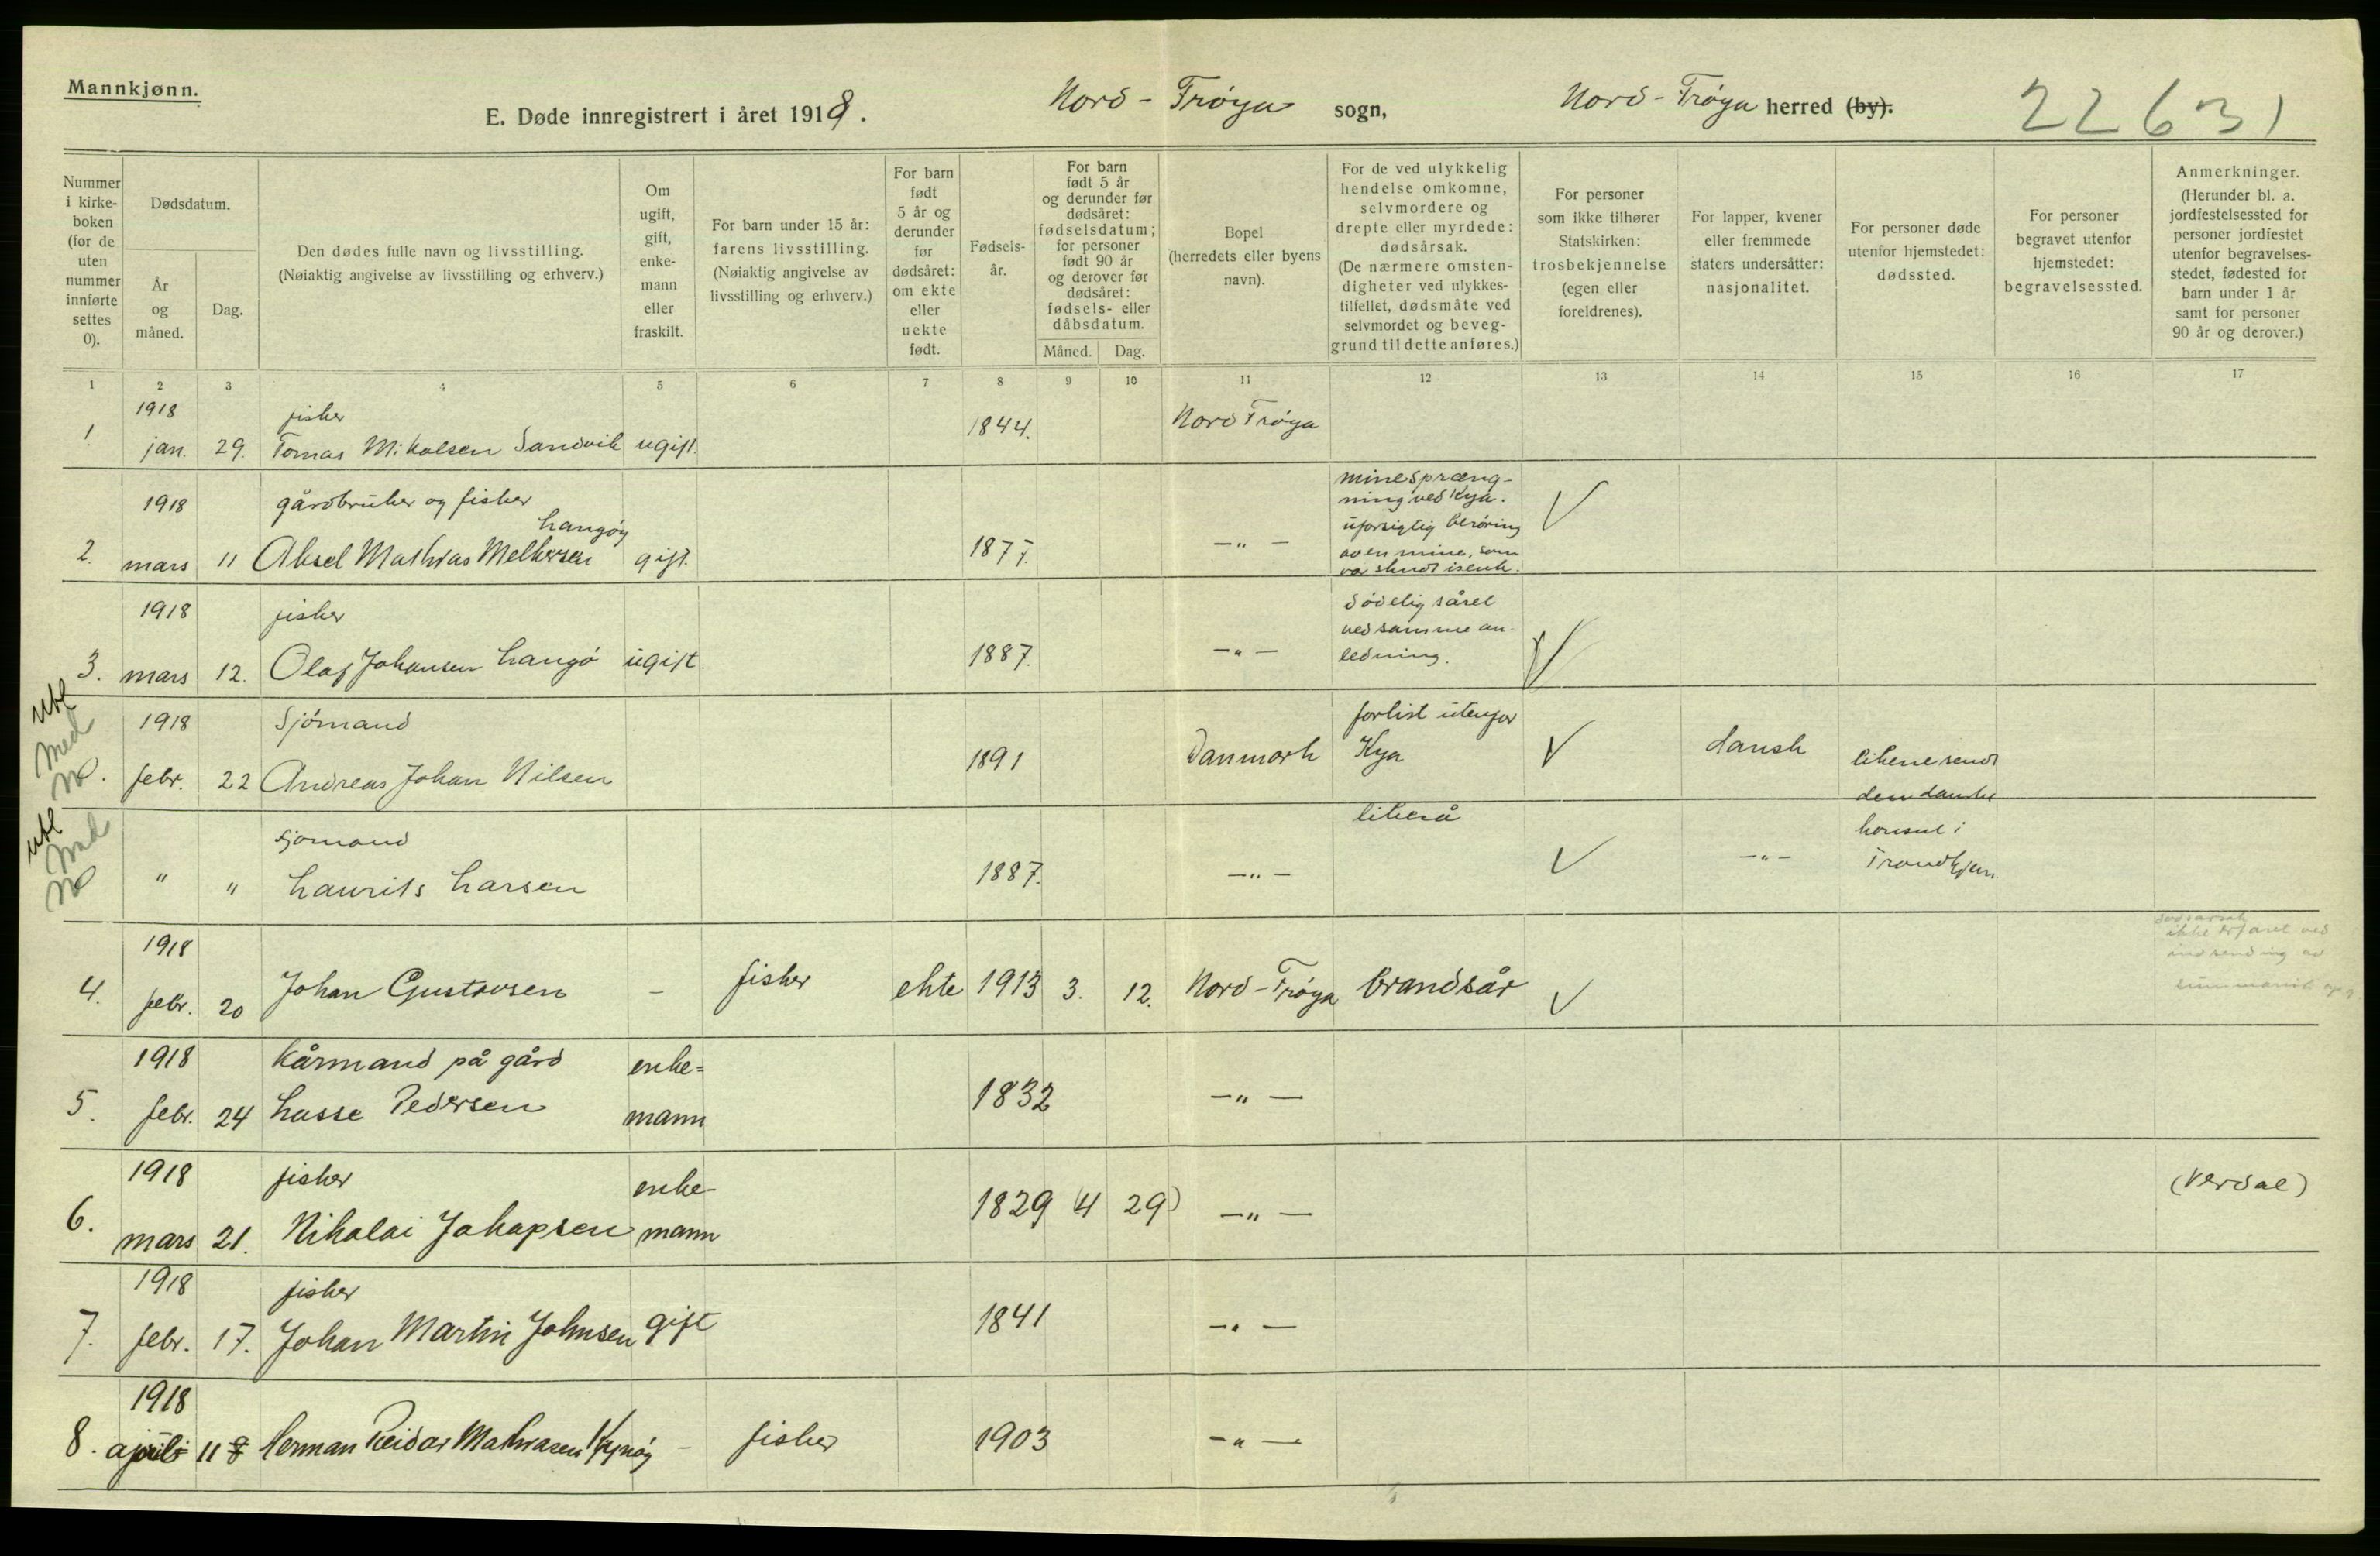 Mannkjønn.
E. Døde innregistrert i året 1918. Nord-Frøya sogn, Nord-Frøya herred (by). 22631
Nummer i kirke- boken (for de uten nummer innførte settes 0).
Dødsdatum.
År og måned.
Dag.
Den dødes fulle navn og livsstilling.
(Nøiaktig angivelse av livsstilling og erhverv.)
Om ugift, gift, enke- mann eller fraskilt.
For barn under 15 år: farens livsstilling.
(Nøiaktig angivelse av livsstilling og erhverv.)
For barn født 5 år og derunder før dødsåret: om ekte eller uekte født.
Fødsels- år.
For barn født 5 år og derunder før dødsåret: fødselsdatum; for personer født 90 år og derover før dødsåret: fødsels- eller dåbsdatum.
Måned. Dag.
Bopel (herredets eller byens navn).
For de ved ulykkelig hendelse omkomne, selvmordere og drepte eller myrdede: dødsårsak.
(De nærmere omsten- digheter ved ulykkes- tilfellet, dødsmåte ved selvmordet og beveg- grund til dette anføres.)
For personer som ikke tilhører Statskirken: trosbekjennelse (egen eller foreldrenes).
For lapper, kvener eller fremmede staters undersåtter: nasjonalitet.
For personer døde utenfor hjemstedet: dødssted.
For personer begravet utenfor hjemstedet: begravelsessted.
Anmerkninger.
(Herunder bl. a. jordfestelsessted for personer jordfestet utenfor begravelses- stedet, fødested for barn under 1 år samt for personer 90 år og derover.)
1 2 3 4 5 6 7 8 9 10 11 12 13 14 15 16 17
1918 fisker
1. jan. 29. Tomas Mikalsen Sandvik ugift. 1844. Nord Frøya
1918 gårdbruker og fisker
Langøy
2. mars 11 Aksel Mathias Melkersen gift. 1877. —"—
minespræng-
ning ved Kya.
uforsigtig berøring
av en mine, som
var skudt isenk.
1918 fisker
3. mars 12. Olaf Johansen Langø ugift. 1887. —"—
dødelig såret
ved samme an-
ledning.
utl
Med
No.
1918 Sjømand
febr. 22 Andreas Johan Nilsen 1891 Danmark
forlist utenfor
Kya
dansk
likene sendt
den danske
utl
Med
No
sjømand
" " Laurits Larsen 1887. —"—
likeså
—"—
konsul i
Trondhjem.
1918
4. febr. 20 Johan Gustavsen — fisker ekte 1913 3. 12. Nord-Frøya brandsår
dødsårsak
ikke erfaret ved
indsending av
summarisk opg.
1918 Kårmand på gård enke-
5. febr. 24 Lasse Pedersen mann 1832 —"—
1918 fisker enke-
6. mars 21. Nikolai Jakapsen mann 1829 (4 29) —"— (Verdal)
1918 fisker
7. febr. 17. Johan Martin Johnsen gift 1841 —"—
1918
8. april 11 Herman Reidar Mathiasen Kynøy — fisker 1903 —"—